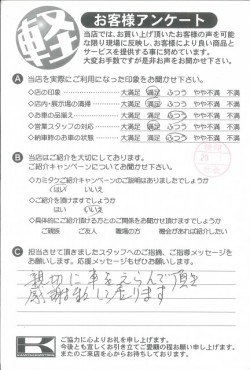 軽
お客様アンケート
当店では、お買い上げ頂いたお客様の声を可能
な限り現場に反映し、お客様により良い商品と
サービスを提供する事に努めています。
大変お手数ですが是非お声をお聞かせ下さい。
A 当店を実際にご利用になった印象をお聞かせ下さい。
◇店の印象 大満足 満足 ふつう やや不満 不満
◇店内・展示場の清掃 大満足 満足 ふつう やや不満 不満
◇お車の品揃え 大満足 満足 ふつう やや不満 不満
◇営業スタッフの対応 大満足 満足 ふつう やや不満 不満
◇納車時のお車の状態 大満足 満足 ふつう やや不満 不満
B 当店はご紹介を大切にしております。
ご紹介キャンペーンについてお聞かせ下さい。
◇カミタケご紹介キャンペーンのご説明はありましたでしょうか
はい いいえ
◇ご紹介を頂けますでしょうか
はい いいえ
◇具体的にご紹介頂ける方とのご関係をお聞かせ頂けますでしょうか
ご親族 ご友人 職場の方 機会があれば紹介したい
C 担当させて頂きましたスタッフへのご指摘、ご指導メッセージを
お願いします。応援メッセージもぜひお願いします。
親切に車をえらんで頂き
感謝致して居ります
K
ご協力に心よりお礼を申し上げます。
今後とも宜しくお引き立てご愛顧の程お願い申し上げます。
またのご来店を心からお待ちしております。